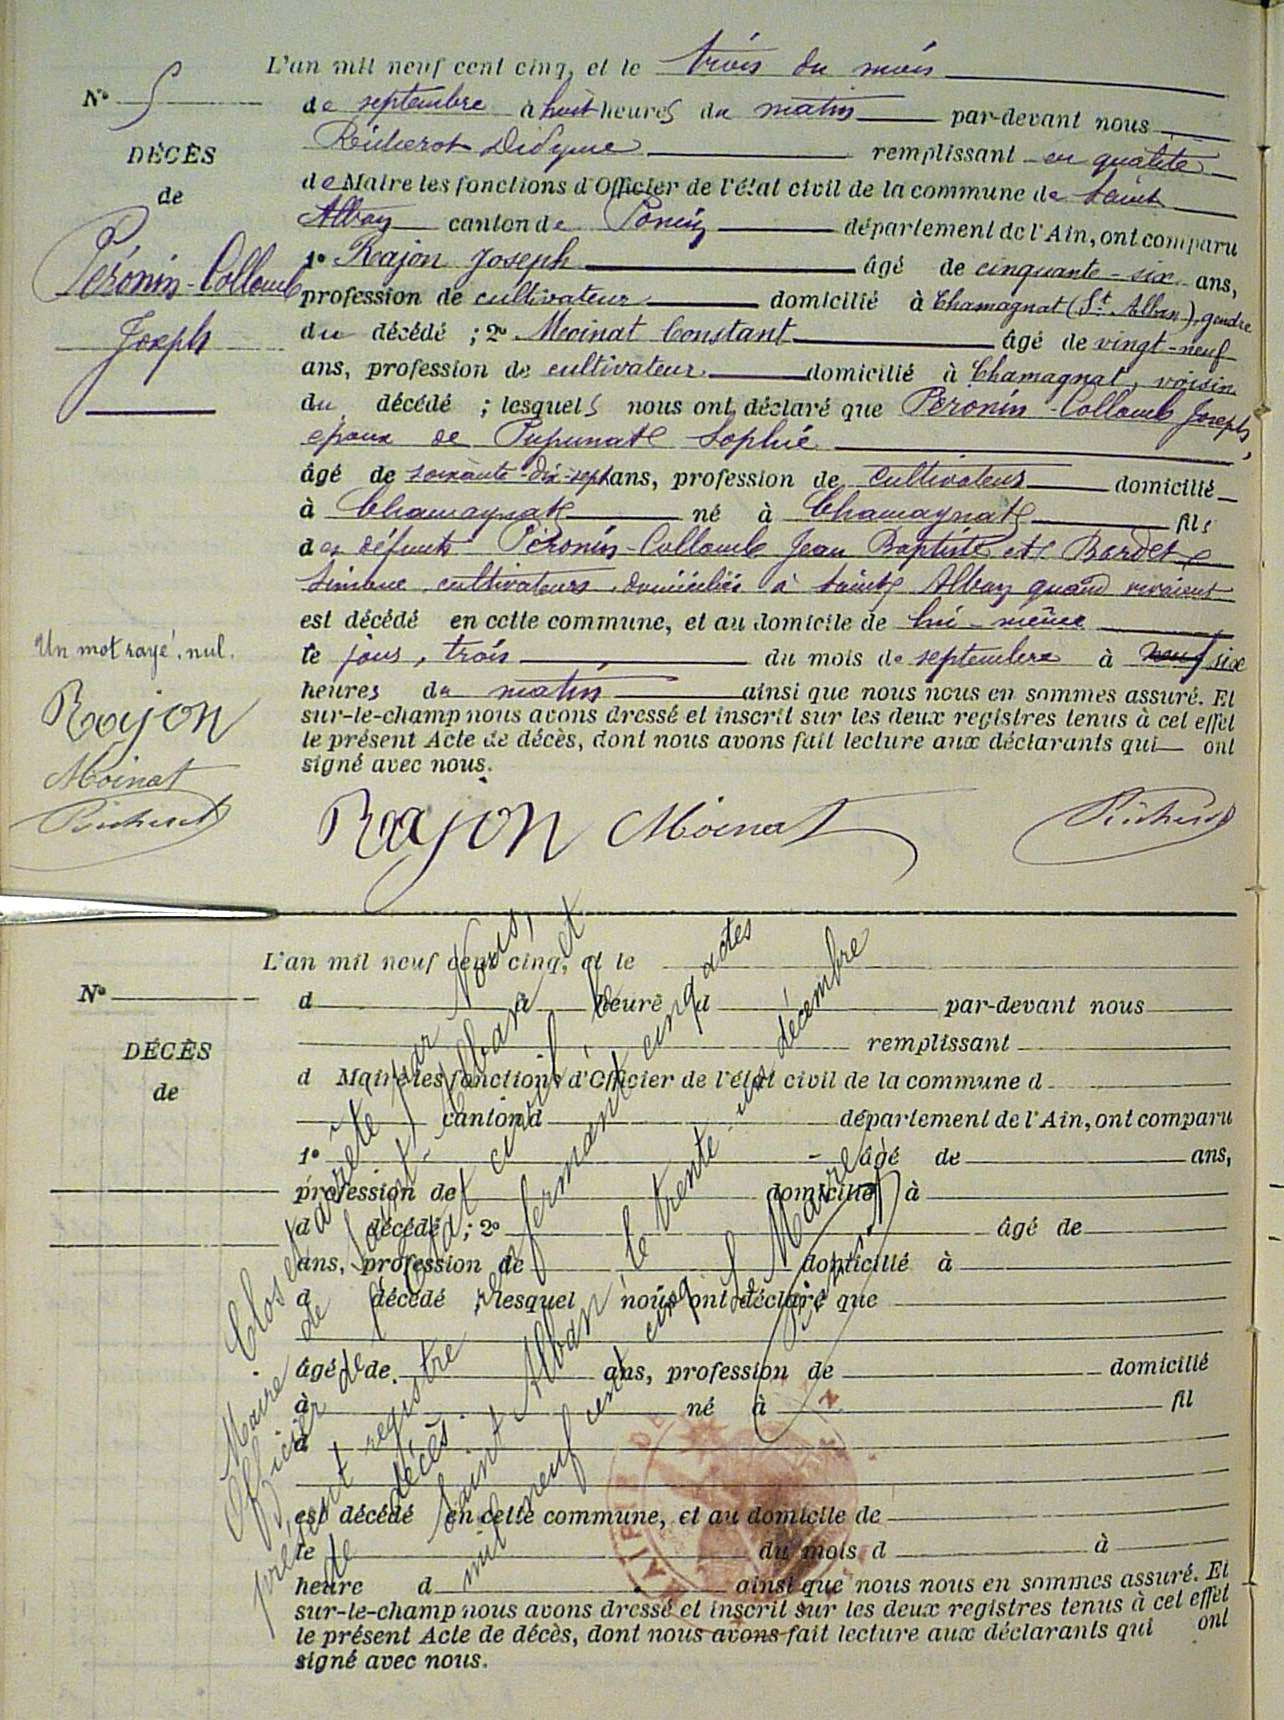 L'an mil neuf cent cinq, et le trois du mois
N° 5
de septembre à huit heures du matin par-devant nous
DÉCÈS
Richerot Didyme remplissant en qualité
de
de Maire les fonctions d'Officier de l'état civil de la commune de Saint
Alban canton de Poncin département de l'Ain, ont comparu
Péronin-Collomb
Joseph
1° Rajon Joseph âgé de cinquante-six ans,
profession de cultivateur domicilié à Chamagnat (St Alban), gendre
du décédé ; 2° Moinat Constant âgé de vingt-neuf
ans, profession de cultivateur domicilié à Chamagnat, voisin
du décédé ; lesquels nous ont déclaré que Péronin-Collomb Joseph,
époux de Pupunat Sophie
âgé de soixante-dix-sept ans, profession de cultivateur domicilié
à Chamagnat né à Chamagnat fils
des défunts Péronin-Collomb Jean Baptiste et Bardet
cultivateurs, domiciliés à Saint Alban quand vivaient
est décédé en cette commune, et au domicile de lui-même
le jour, trois du mois de septembre à neuf six
heures du matin ainsi que nous nous en sommes assuré. Et
sur-le-champ nous avons dressé et inscrit sur les deux registres tenus à cet effet
le présent Acte de décès, dont nous avons fait lecture aux déclarants qui ont
signé avec nous.
Un mot rayé, nul.
Rajon
Moinat
Richerot
Rajon Moinat Richerot
L'an mil neuf cent cinq, et le
N°
d à heure d par-devant nous
DÉCÈS
remplissant
de
d Maire les fonctions d'Officier de l'état civil de la commune d
canton d département de l'Ain, ont comparu
1° âgé de ans,
profession de domicilié à
d décédé ; 2° âgé de
ans, profession de domicilié à
d décédé ; lesquel nous ont déclaré que
âgé de ans, profession de domicilié
à né à fil
d
est décédé en cette commune, et au domicile de
le du mois d à
heure d ainsi que nous nous en sommes assuré. Et
sur-le-champ nous avons dressé et inscrit sur les deux registres tenus à cet effet
le présent Acte de décès, dont nous avons fait lecture aux déclarants qui ont
signé avec nous.
Clos et arrêté par Nous,
Maire de Saint-Alban et
Officier de l'état civil le
présent registre renfermant cinq actes
de décès.
Saint Alban le trente-un décembre
mil neuf cent cinq
Le Maire
MAIRIE DE